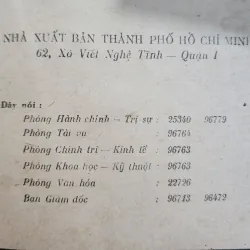 NHÀ XUẤT BẢN THÀNH PHỐ HỒ CHÍ MINH
62, Xô Viết Nghệ Tĩnh — Quận I
Dây nói :
Phòng Hành chính — Trị sự : 25340 96779
Phòng Tài vụ : 96764
Phòng Chính trị — Kinh tế : 96763
Phòng Khoa học — Kỹ thuật : 96763
Phòng Văn hóa : 22726
Ban Giám đốc : 96713 96472